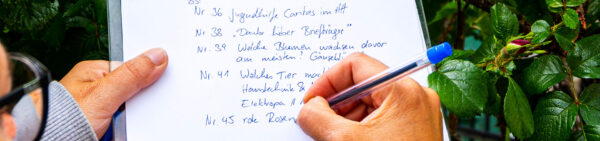 Nr. 36 Jugendhilfe Caritas im HH
Nr. 38 „Danke lieber Briefträger“
Nr. 39 Welche Blumen wachsen davor
am meisten? Gänsebl
Nr. 41 Welches Tier
Haustechnik &
Elektropa
Nr. 45 rote Rosen